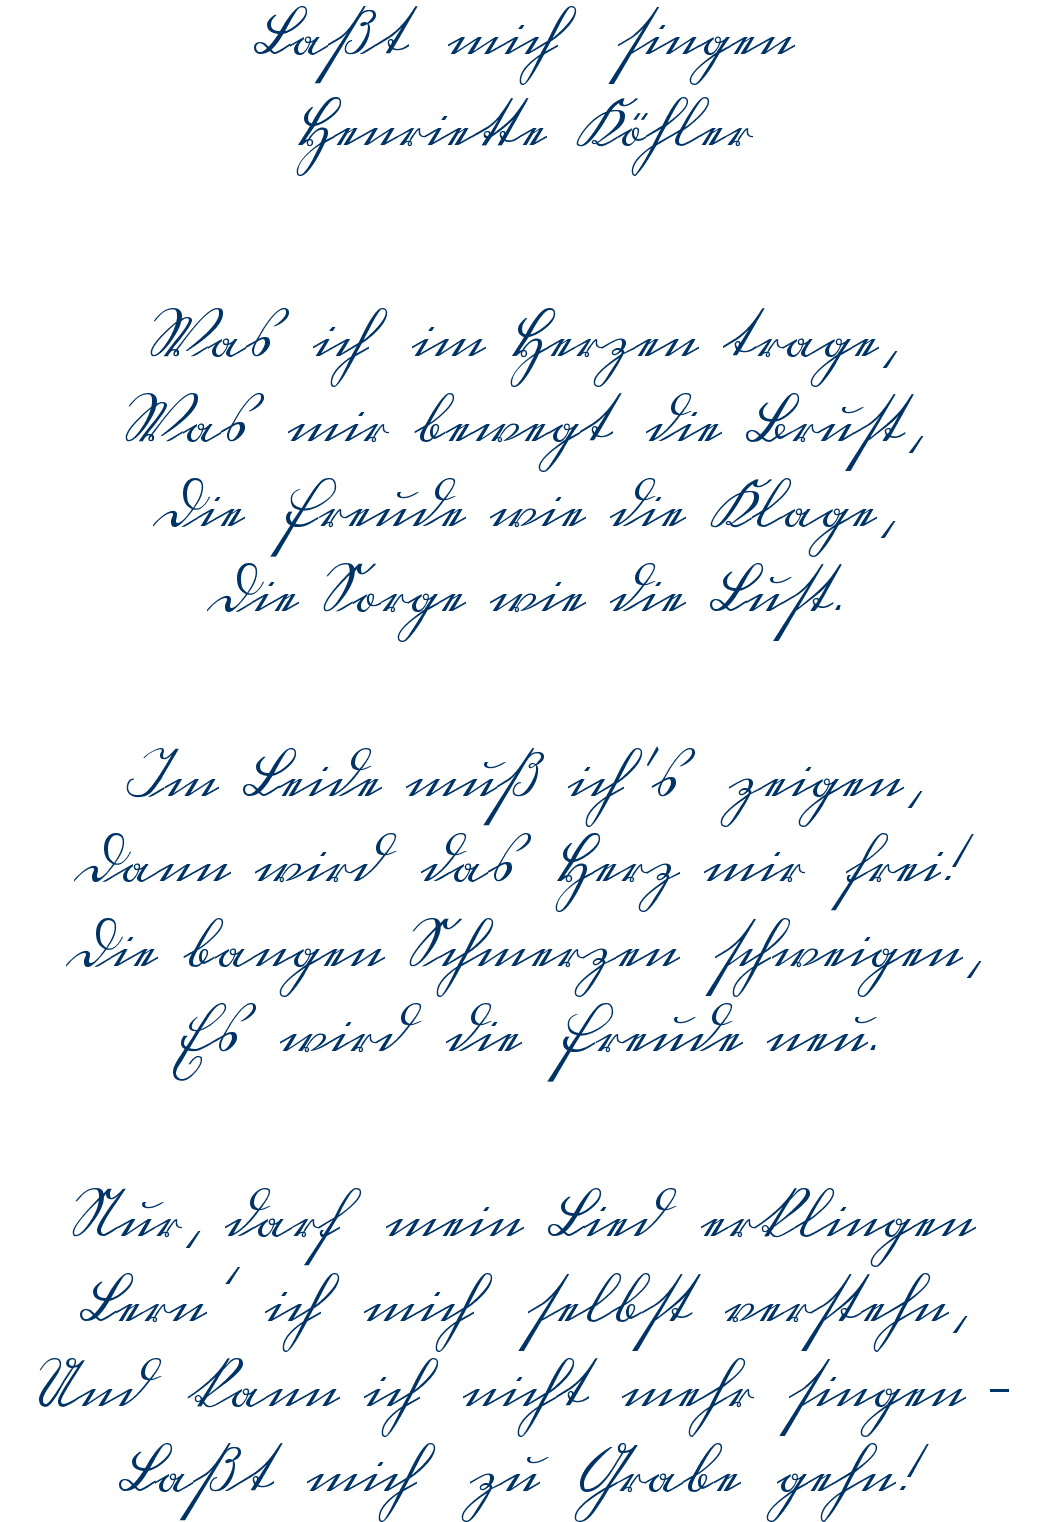 Laßt mich singen
Henriette Köhler
Was ich im Herzen trage,
Was mir bewegt die Brust,
Die Freude wie die Klage,
Die Sorge wie die Lust.
Im Leide muß ich's zeigen,
Dann wird das Herz mir frei!
Die bangen Schmerzen schweigen,
Es wird die Freude neu.
Nur, darf mein Lied erklingen
Lern' ich mich selbst verstehn,
Und kann ich nicht mehr singen -
Laßt mich zu Grabe gehn!